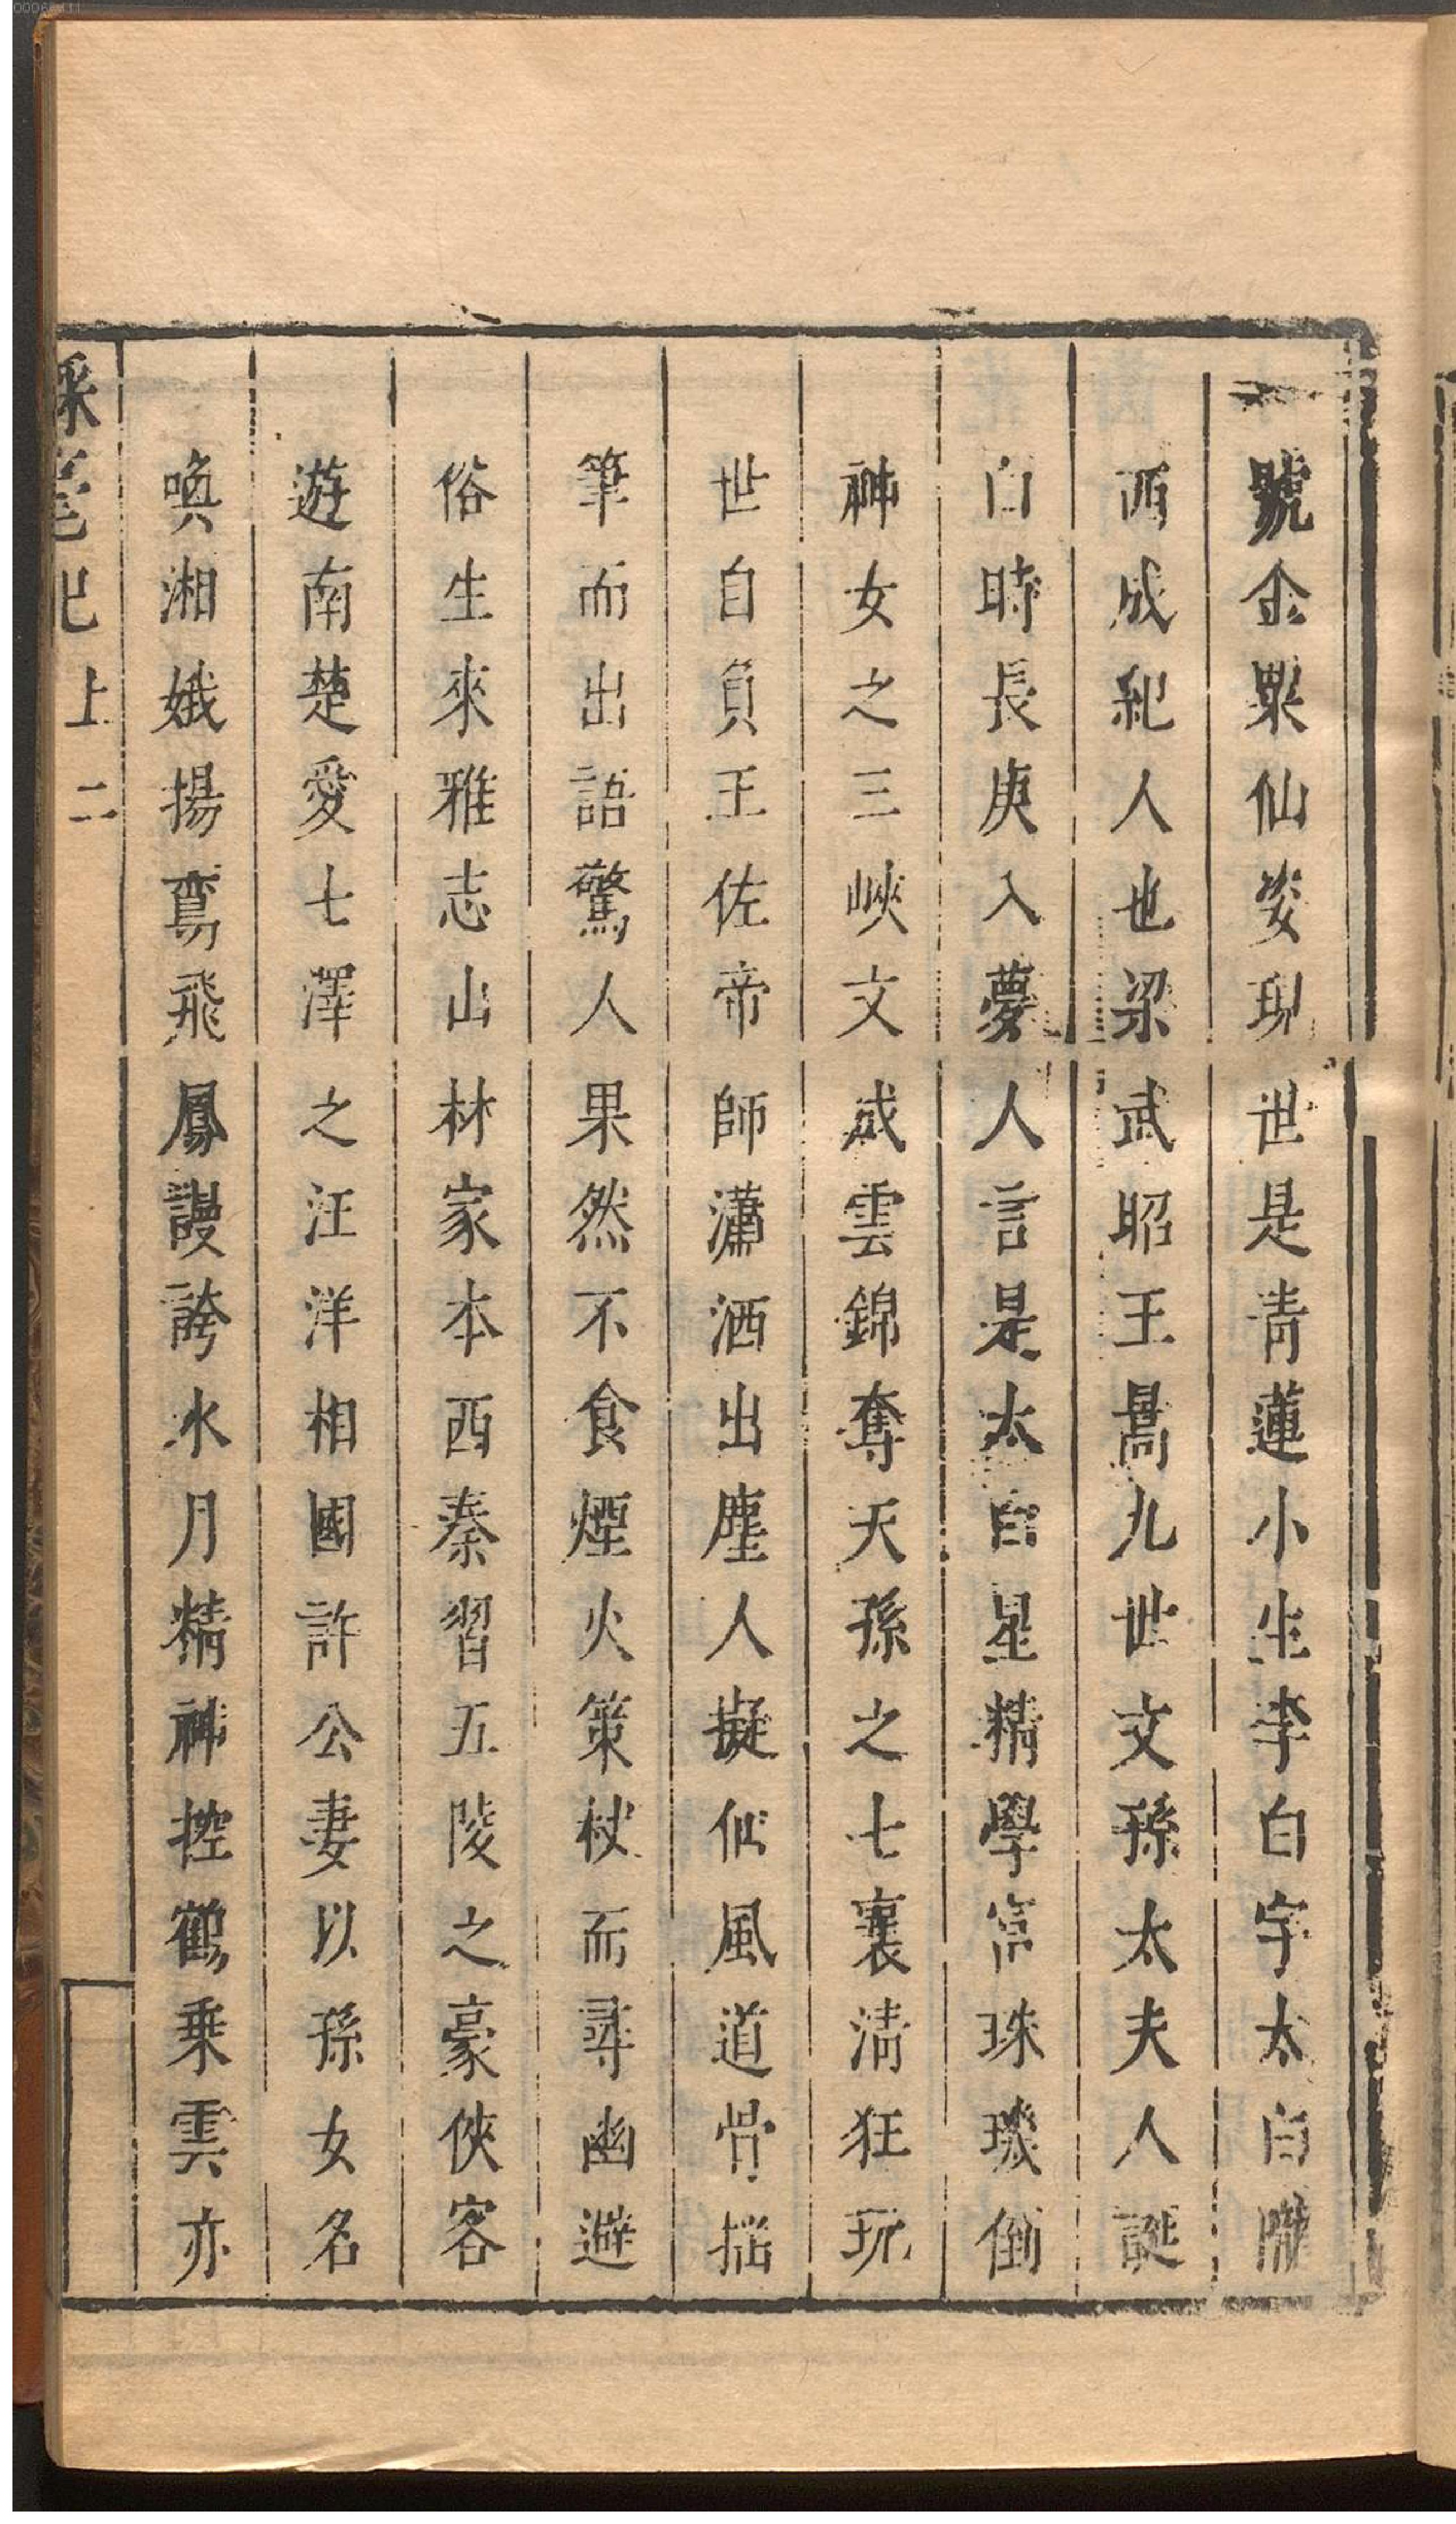 號金粟仙姿現世是青蓮小生李白字太白隴
西成紀人也梁武昭王暠九世文孫太夫人誕
白時長庚入夢人言是太白星精學富珠璣倒
神女之三峽文成雲錦奪天孫之七襄淸狂玩
世自負王佐帝師瀟洒出塵人擬仙風道骨揺
筆而出語驚人果然不食煙火策杖而尋幽避
俗生來雅志山林家本西秦習五陵之豪俠客
遊南楚愛七澤之汪洋相國許公妻以孫女名
喚湘娥揚鸞飛鳳謾誇水月精神控鶴乗雲亦
綵毫記 上 二